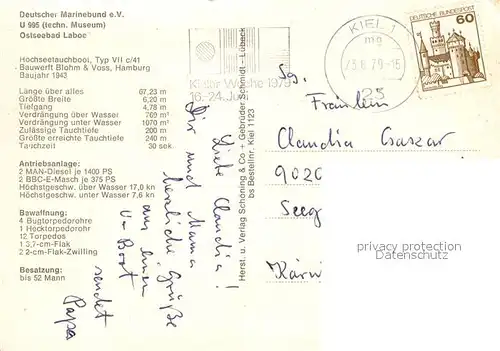 Deutscher Marinebund e.V.
U 995 (techn. Museum)
Ostseebad Laboe
Hochseetauchboot, Typ VII c/41
Bauwerft Blohm & Voss, Hamburg
Baujahr 1943
Länge über alles 67,23 m
Größte Breite 6,20 m
Tiefgang 4,78 m
Verdrängung über Wasser 769 m³
Verdrängung unter Wasser 1070 m³
Zulässige Tauchtiefe 200 m
Größte erreichte Tauchtiefe 240 m
Tauchzeit 30 sek
Antriebsanlage:
2 MAN-Diesel je 1400 PS
2 BBC-E-Masch je 375 PS
Höchstgeschw. über Wasser 17,0 kn
Höchstgeschw. unter Wasser 7,6 kn
Bewaffnung:
4 Bugtorpedorohre
1 Hecktorpedorohr
12 Torpedos
1 3,7-cm-Flak
2 2-cm-Flak-Zwilling
Besatzung:
bis 52 Mann
Liebe Claudia!
Dir und Mama
herzliche Grüße
aus einem
U-Boot
sendet
Papa
Herst. u. Verlag Schöning & Co + Gebrüder Schmidt - Lübeck
bs Bestellnr. Kiel 1123
Kieler Woche 1979
16.-24. Juni
KIEL 1
mg
23.6.79-15
23
DEUTSCHE BUNDESPOST
60
Fräulein
Claudia Csaszar
9020
Seeg
Kärn
privacy protection
Datenschutz